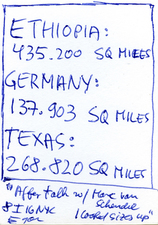 ETHIOPIA:
435.200 SQ MILES
GERMANY:
137.903 SQ MILES
TEXAS:
268.820 SQ MILES
"After talk w/ Marc van
I looked sizes up"